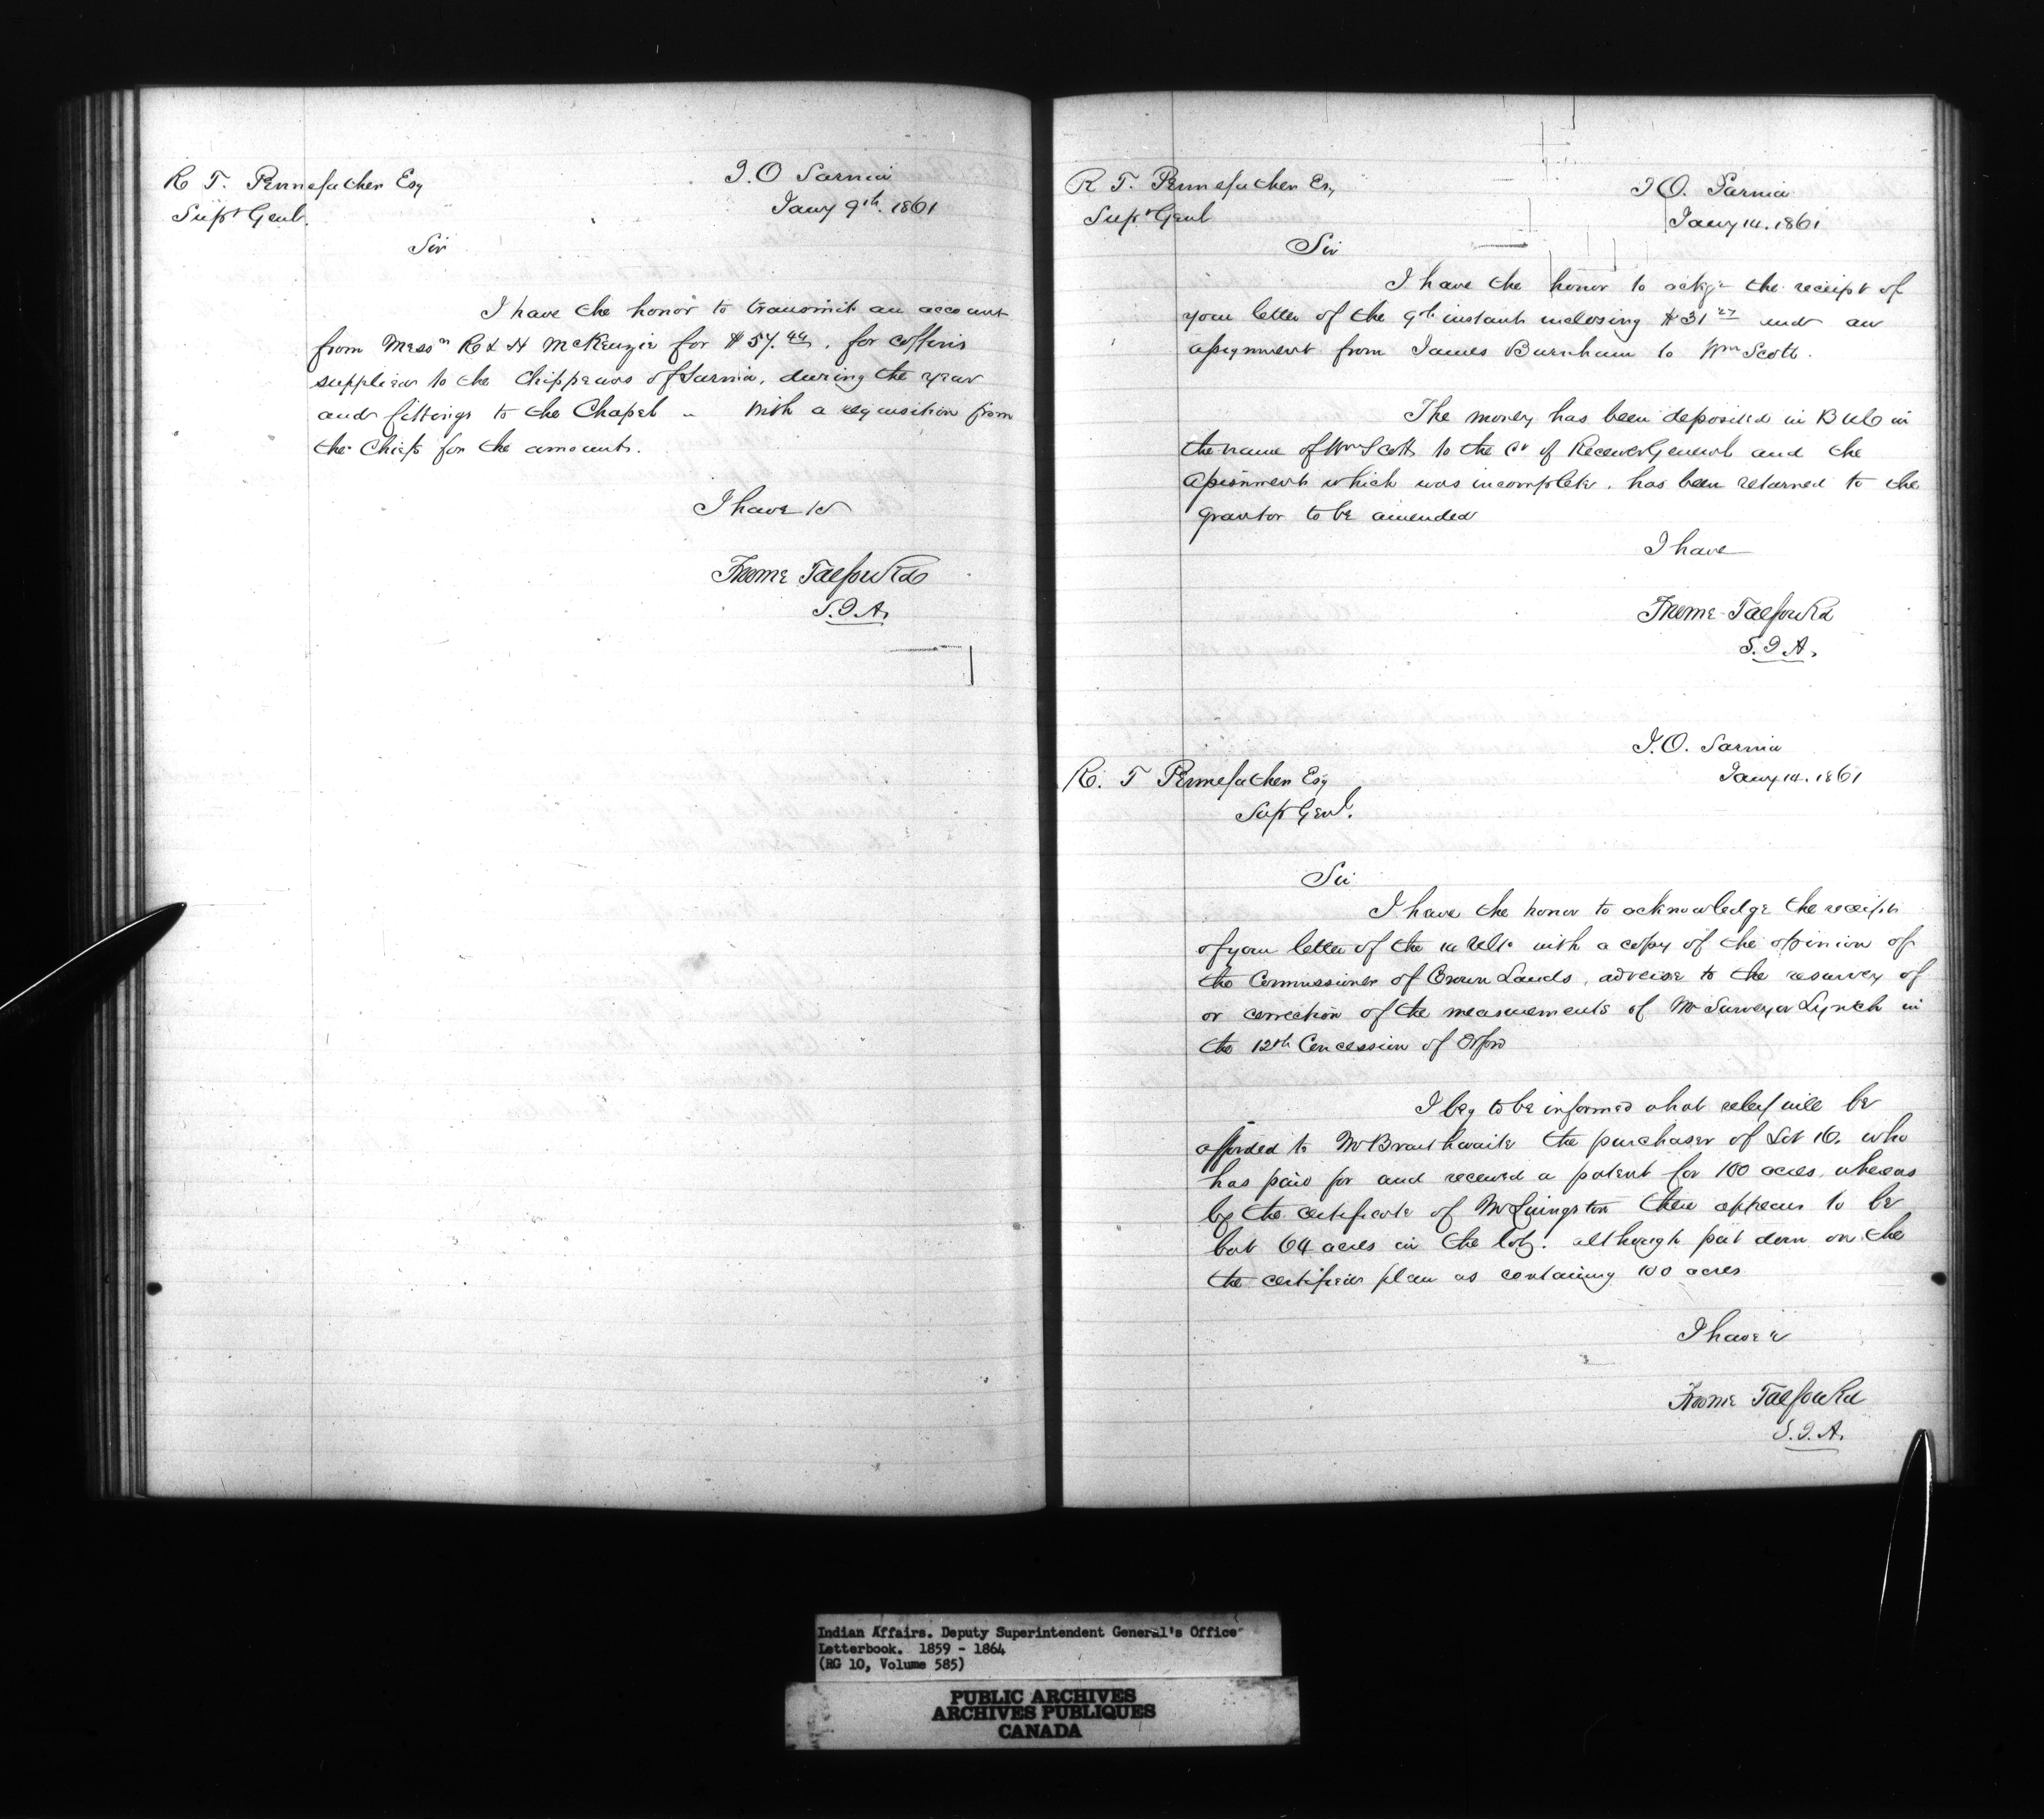 R T. Pennefather Esq
Supt Genl.
I.O Sarnia
Jany 9th. 1861
Sir
I have the honor to transmit an account
from Messrs R & H McKenzie for $57.44. for coffins
supplied to the Chippewas of Sarnia, during the year
and fittings to the Chapel - With a requisition from
the Chiefs for the amount.
I have &c
Froome Talfourd
S.I.A.
R T. Pennefather Esq
Supt Genl
I O. Sarnia
Jany 14. 1861
Sir
I have the honor to ackge the receipt of
your letter of the 9th instant inclosing $31 27 and an
assignment from James Burnham to Wm Scott.
The money has been deposited in B U C in
the name of Wm Scott to the Cr of Receiver General and the
assignment which was incomplete, has been returned to the
grantor to be amended
I have
Froome Talfourd
S.I.A.
I.O. Sarnia
Jany 14. 1861
R. T Pennefather Esq
Supt Genl.
Sir
I have the honor to acknowledge the receipt
of your letter of the Ulto with a copy of the opinion of
the Commissioner of Crown Lands, adverse to the resurvey of
or correction of the measurements of Mr Surveyor Lynch in
the 12th Concession of Orford
I beg to be informed what relief will be
afforded to Mr Braithwaite the purchaser of Lot 16. who
has paid for and received a patent for 100 acres, whereas
by the certificate of Mr Livingston there appears to be
but 64 acres in the lot. although put down on the
the certified plan as containing 100 acres
I have &
Froome Talfourd
S.I.A.
Indian Affairs. Deputy Superintendent General's Office
Letterbook. 1859 - 1864
(RG 10, Volume 585)
PUBLIC ARCHIVES
ARCHIVES PUBLIQUES
CANADA